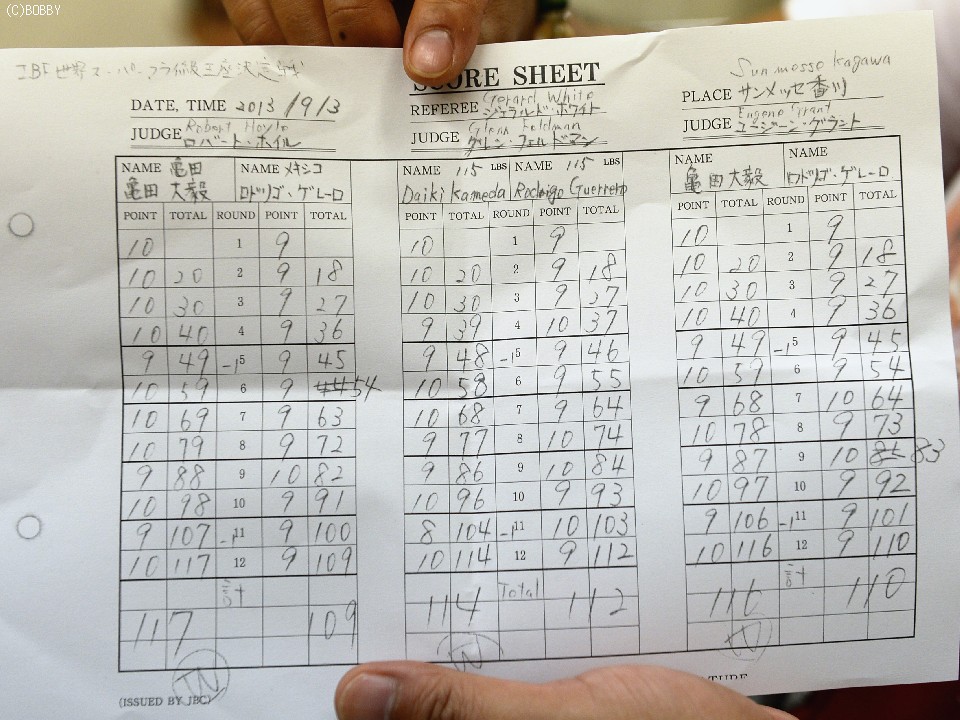 (C)BOBBY
IBF世界スーパーフライ級王座決定戦
SCORE SHEET
Sunmesse Kagawa
DATE, TIME 2013/9/3
REFEREE Gerard White ジェラルド・ホワイト
PLACE サンメッセ香川
JUDGE Robert Hoyle ロバート・ホイル
JUDGE Glenn Feldman グレン・フェルドマン
JUDGE Eugene Grant ユージーン・グラント
NAME 亀田 NAME メキシコ
亀田 大毅 ロドリゴ・ゲレーロ
POINT TOTAL ROUND POINT TOTAL
10 1 9
10 20 2 9 18
10 30 3 9 27
10 40 4 9 36
9 49 -1 5 9 45
10 59 6 9 44 54
10 69 7 9 63
10 79 8 9 72
9 88 9 10 82
10 98 10 9 91
9 107 -1 11 9 100
10 117 12 9 109
計
117 109
TN
(ISSUED BY JBC)
NAME 115 LBS NAME 115 LBS
Daiki Kameda Rodrigo Guerrero
POINT TOTAL ROUND POINT TOTAL
10 1 9
10 20 2 9 18
10 30 3 9 27
9 39 4 10 37
9 48 -1 5 9 46
10 58 6 9 55
10 68 7 9 64
9 77 8 10 74
9 86 9 10 84
10 96 10 9 93
8 104 -1 11 10 103
10 114 12 9 112
Total
114 112
TN
NAME NAME
亀田大毅 ロドリゴ・ゲレーロ
POINT TOTAL ROUND POINT TOTAL
10 1 9
10 20 2 9 18
10 30 3 9 27
10 40 4 9 36
9 49 -1 5 9 45
10 59 6 9 54
9 68 7 10 64
10 78 8 9 73
9 87 9 10 83
10 97 10 9 92
9 106 -1 11 9 101
10 116 12 9 110
計
116 110
TN